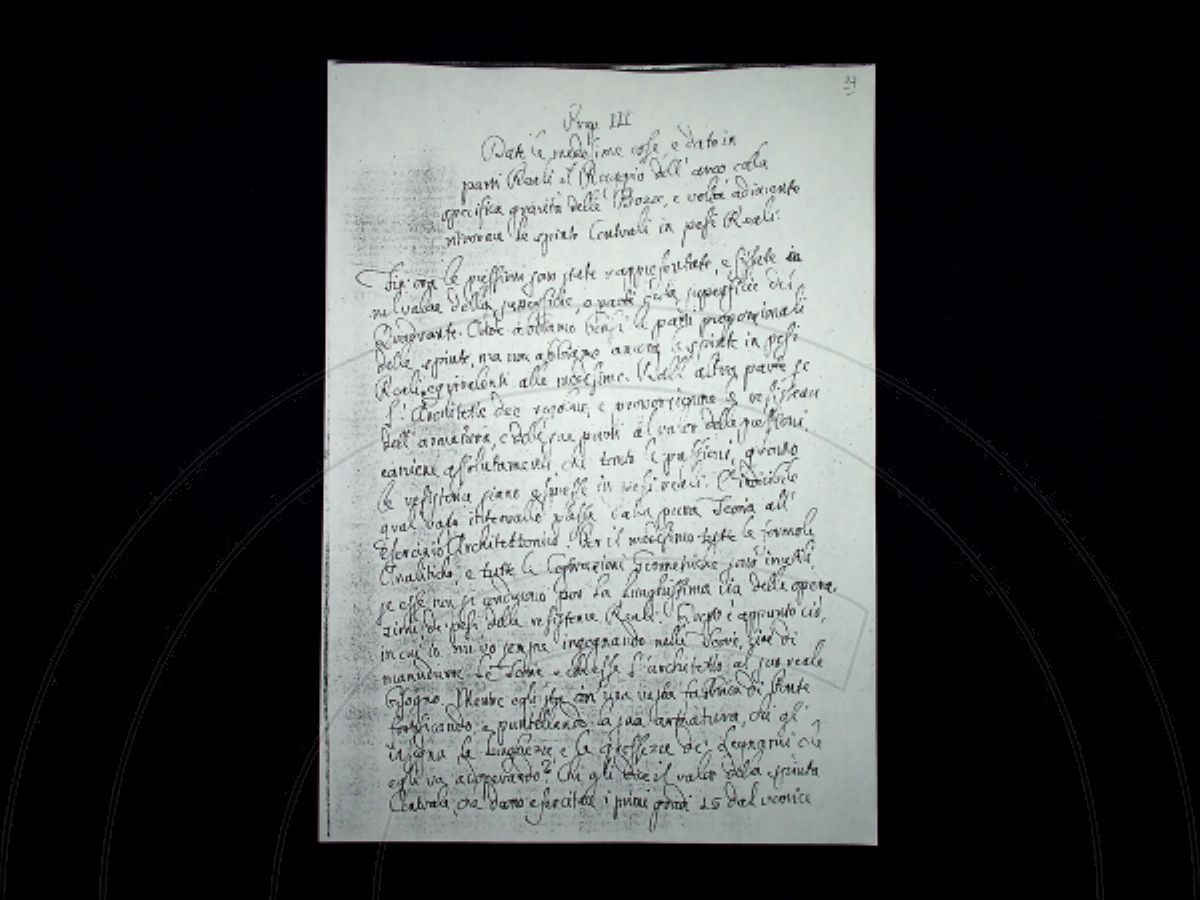 24
Prop. III
Date le medesime cose, e dato in
parti Reali il Raggio dell'arco colla
specifica gravità delle Bozze, e volta adiacente
ritrovare le spinte Centrali in pesi Reali.
Fin ora le pressioni sono state rappresentate, e fissate in
nel valore della superficie, o parti della superficie del
Quadrante. Cioè abbiamo bensì le parti proporzionali
delle spinte, ma non abbiamo ancora le spinte in pesi
Reali equivalenti alle medesime. Dall'altra parte se
l'Architetto dee regolare, e proporzionare le resistenze
dell'armatura, e delle sue parti al valor delle pressioni,
conviene assolutamente, che tanto le pressioni, quanto
le resistenze siano espresse in pesi reali. È indicibile
qual vasto intervallo passa dalla pura Teoria all'
Esercizio Architettonico. Per il medesimo tutte le formole
Analitiche, e tutte le Costruzioni Geometriche sono inutili,
se esse non si conducono per la lunghissima via delle opera
zioni de' pesi delle resistenze Reali. Questo è appunto ciò,
in cui io mi vo sempre ingegnando nelle Teorie, cioè di
manudurre le Teorie e l'architetto al suo reale
bisogno. Mentre egli sta con una vasta fabbrica di Ponte
fortificando, e puntellando la sua armatura, chi gli
insegna la lunghezza e la grossezza de' Legnami che
egli va adoperando? Chi gli dice il valor della spinta
Centrale, che danno esercitare i primi gradi 15 dal vertice